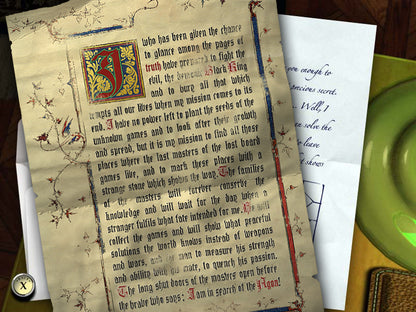 I who has been given the chance
to glance among the pages of
truth have prepared to fight the
evil, the demonic Black King
and to bury all that which
tempts all our lives when my mission comes to its
end. I have no power left to plant the seeds of the
unknown games and to look after their growth
and spread, but it is my mission to find all those
places where the last masters of the lost board
games live, and to mark these places with a
strange stone which shows the way. The families
of the masters will forever conserve the
knowledge and will wait for the day when a
stranger fulfils what fate intended for me. He will
collect the games and will show what peaceful
solutions the world knows instead of weapons
and wars, and any man to measure his strength
and ability with his mate, to quench his passion.
The long shut doors of the masters open before
the brave who says: I am in search of the Agon!
you enough to
precious secret.
... Well, I
can solve the
leave
shows
X